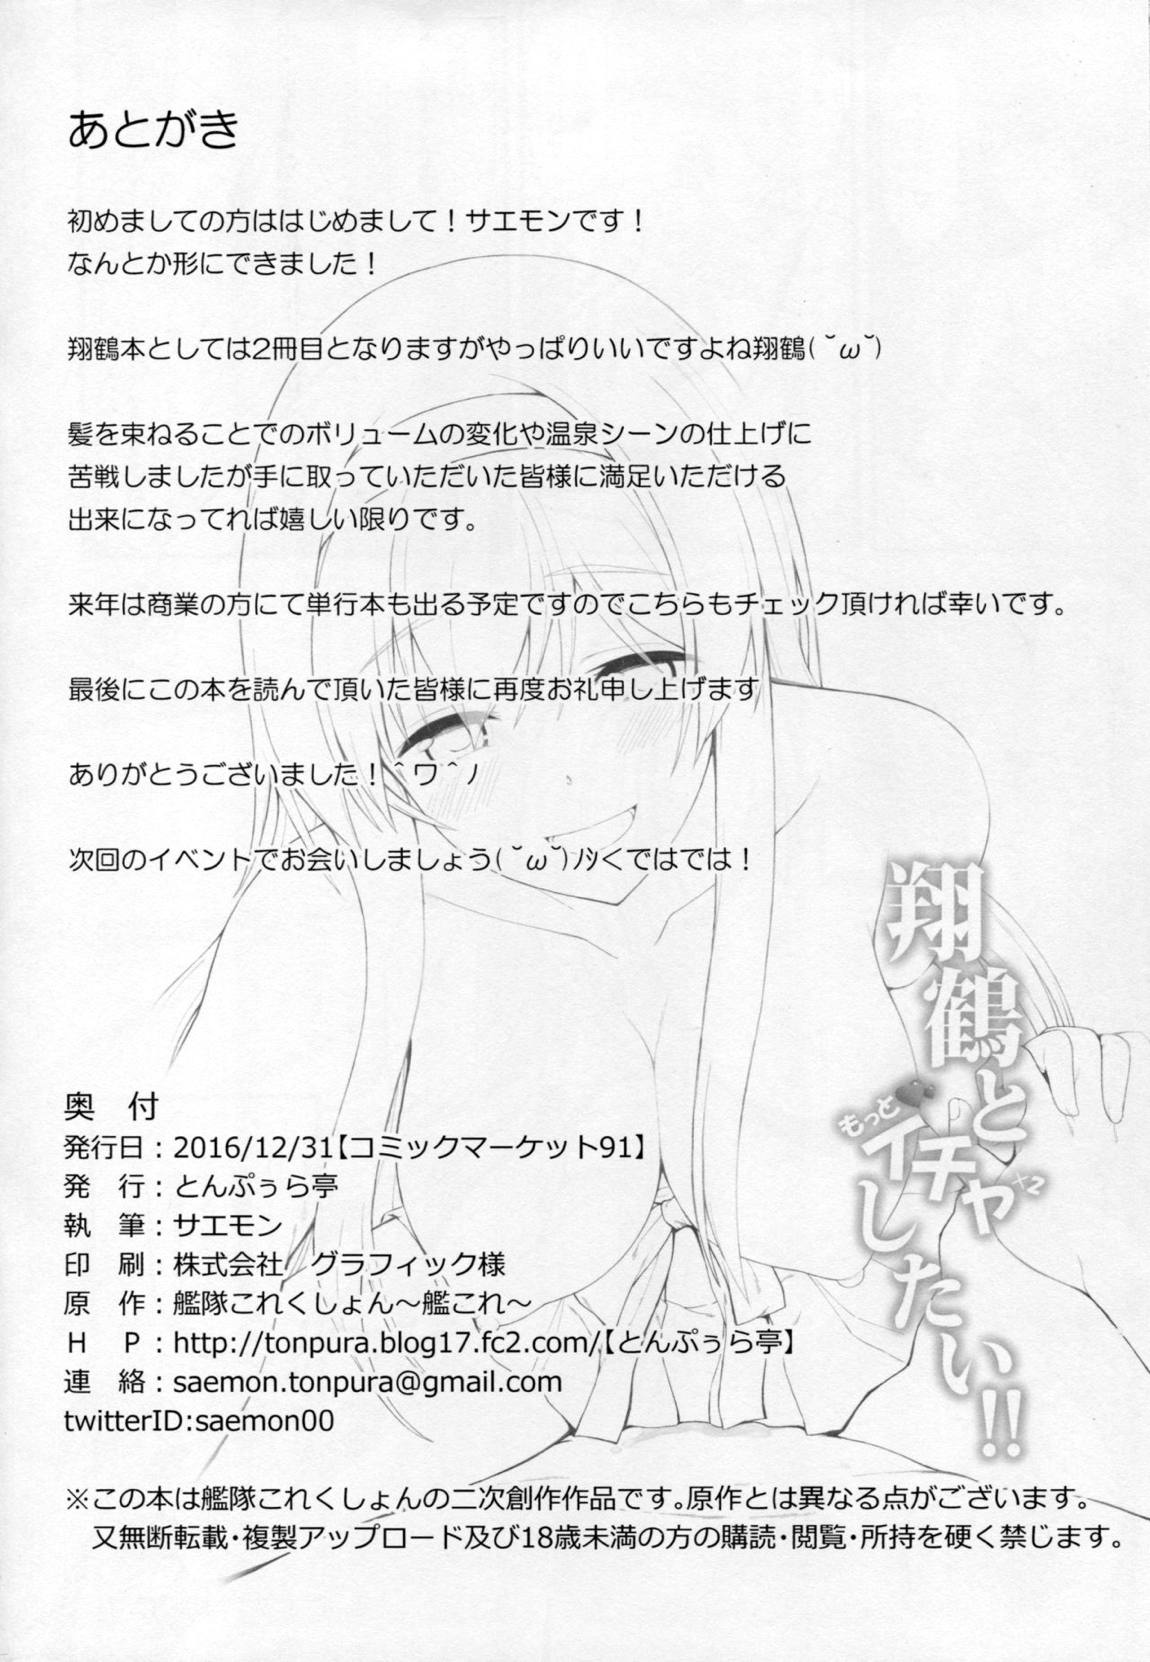 あとがき
初めましての方ははじめまして！サエモンです！
なんとか形にできました！
翔鶴本としては2冊目となりますがやっぱりいいですよね翔鶴(˘ω˘)
髪を束ねることでのボリュームの変化や温泉シーンの仕上げに
苦戦しましたが手に取っていただいた皆様に満足いただける
出来になってれば嬉しい限りです。
来年は商業の方にて単行本も出る予定ですのでこちらもチェック頂ければ幸いです。
最後にこの本を読んで頂いた皆様に再度お礼申し上げます
ありがとうございました！＾ワ＾ノ
次回のイベントでお会いしましょう(˘ω˘)ﾉｼくではでは！
翔鶴と
もっと
イチャ×2
したい!!
奥　付
発行日：2016/12/31【コミックマーケット91】
発　行：とんぷぅら亭
執　筆：サエモン
印　刷：株式会社　グラフィック様
原　作：艦隊これくしょん～艦これ～
H　P：http://tonpura.blog17.fc2.com/【とんぷぅら亭】
連　絡：saemon.tonpura@gmail.com
twitterID:saemon00
※この本は艦隊これくしょんの二次創作作品です。原作とは異なる点がございます。
又無断転載・複製アップロード及び18歳未満の方の購読・閲覧・所持を硬く禁じます。